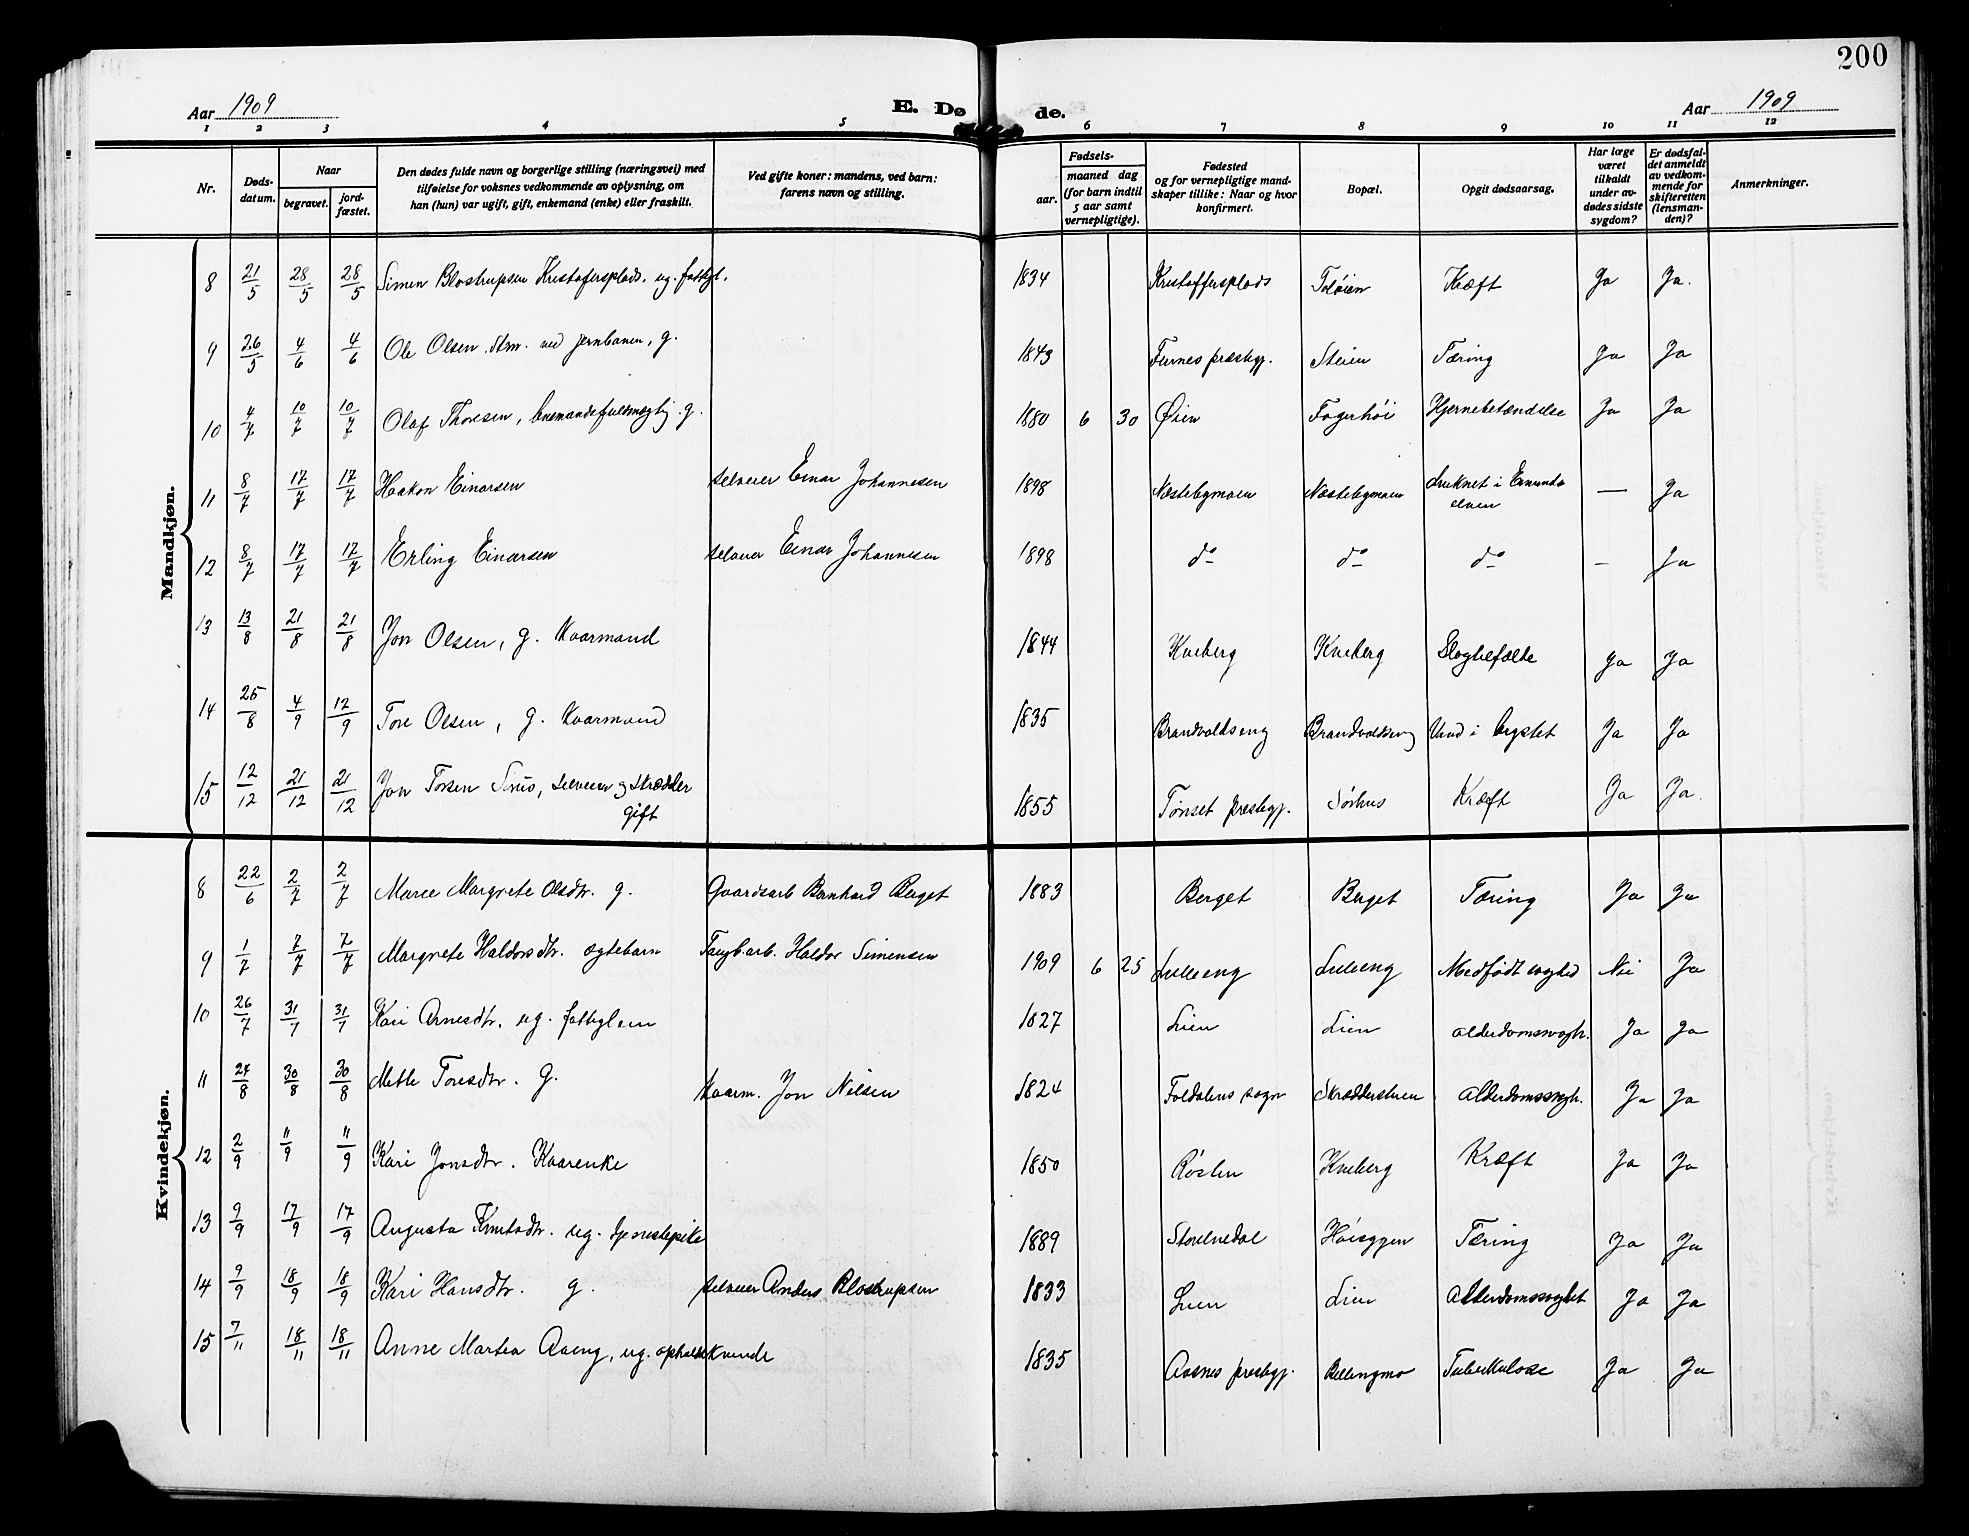 200
Aar 1909
E. Dø
de.
Aar 1909
1 2 3 4 5 6 7 8 9 10 11 12
Nr.
Døds-
datum.
Naar
begravet.
jord-
fæstet.
Den dødes fulde navn og borgerlige stilling (næringsvei) med
tilføielse for voksnes vedkommende av oplysning, om
han (hun) var ugift, gift, enkemand (enke) eller fraskilt.
Ved gifte koner: mandens, ved barn:
farens navn og stilling.
Fødsels-
aar.
maaned dag
(for barn indtil
5 aar samt
vernepligtige).
Fødested
og for vernepligtige mand-
skaper tillike: Naar og hvor
konfirmert.
Bopæl.
Opgit dødsaarsag.
Har læge
været
tilkaldt
under av-
dødes sidste
sygdom?
Er dødsfal-
det anmeldt
av vedkom-
mende for
skifteretten
(lensman-
den)?
Anmerkninger.
Mandkjøn.
8 21/5 28/5 28/5 Simen Blostrupsen Kristofersplads. ug. fattigl. 1834 Kristoffersplads Toløien Kræft Ja Ja.
9 26/5 4/6 4/6 Ole Olsen. Arm. ved jernbanen, g. 1843 Furnes præstegj. Steien Tæring Ja Ja
10 4/7 10/7 10/7 Olaf Thoresen, lensmandsfuldmægtig. g. 1880 6 30 Øien Fagerhøi Hjernebetændelse Ja Ja
11 8/7 17/7 17/7 Haakon Einarsen selveier Einar Johannesen 1898 Næstebymoen Næstebymoen Druknet i Einunda
elven — Ja
12 8/7 17/7 17/7 Erling Einarsen selveier Einar Johannesen 1898 do do do — Ja
13 13/8 21/8 21/8 Jon Olsen, g. Kaarmand 1844 Kveberg Kveberg Slagtilfælde Ja Ja
14 25/8 4/9 12/9 Tore Olsen, g. Kaarmand 1835 Brandvoldseng Brandvoldseng Vand i brystet Ja Ja
15 12/12 21/12 21/12 Jon Torsen, selveier og skrædder
gift 1855 Tønset præstegj. Sørhus Kræft Ja Ja.
Kvindekjøn.
8 22/6 2/7 2/7 Marie Margrete Olsdtr. g. Gaardsarb Bernhard Berget 1883 Berget Berget Tæring Ja Ja
9 1/7 7/7 7/7 Margrete Haldorsdtr. ægtebarn Haldor Simensen 1909 6 25 Lilleeng Lilleeng Medfødt svaghed Nei Ja
10 26/7 31/7 31/7 Kari Arnesdtr. ug. fattiglem 1827 Lien Lien Alderdomssvagh. Ja Ja
11 24/8 30/8 30/8 Mette Toresdtr. G. Kaarm. Jon Nilsen 1824 Foldalens sogn Skrædderstuen Alderdomssvagh. Ja Ja
12 2/9 11/9 11/9 Kari Jonsdtr. Kaarenke 1850 Røsten Kveberg Kræft Ja Ja
13 9/9 17/9 17/9 Augusta Knutsdtr. ug. tjenestepike 1889 Storelvedal Høieggen Tæring Ja Ja
14 9/9 18/9 18/9 Kari Hansdtr. g. selveier Anders Blostrupsen 1833 Lien Lien Alderdomssvaghet Ja Ja
15 7/11 18/11 18/11 Anne Martea Aaeng, ug. opholdskvinde 1835 Aasnes præstegj. Bellingmo Tuberkulose Ja Ja